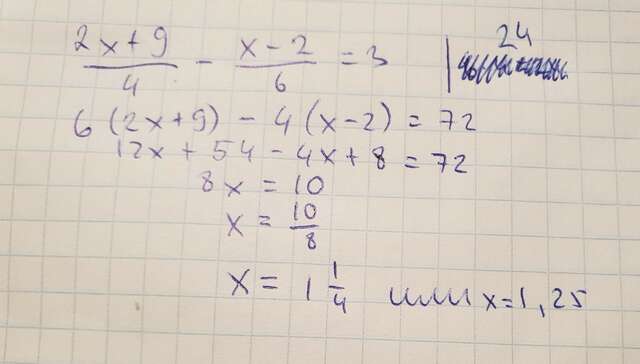 (2x+9)/4 - (x-2)/6 = 3 | 24
6(2x+9) - 4(x-2) = 72
12x + 54 - 4x + 8 = 72
8x = 10
x = 10/8
x = 1 1/4 или x=1,25